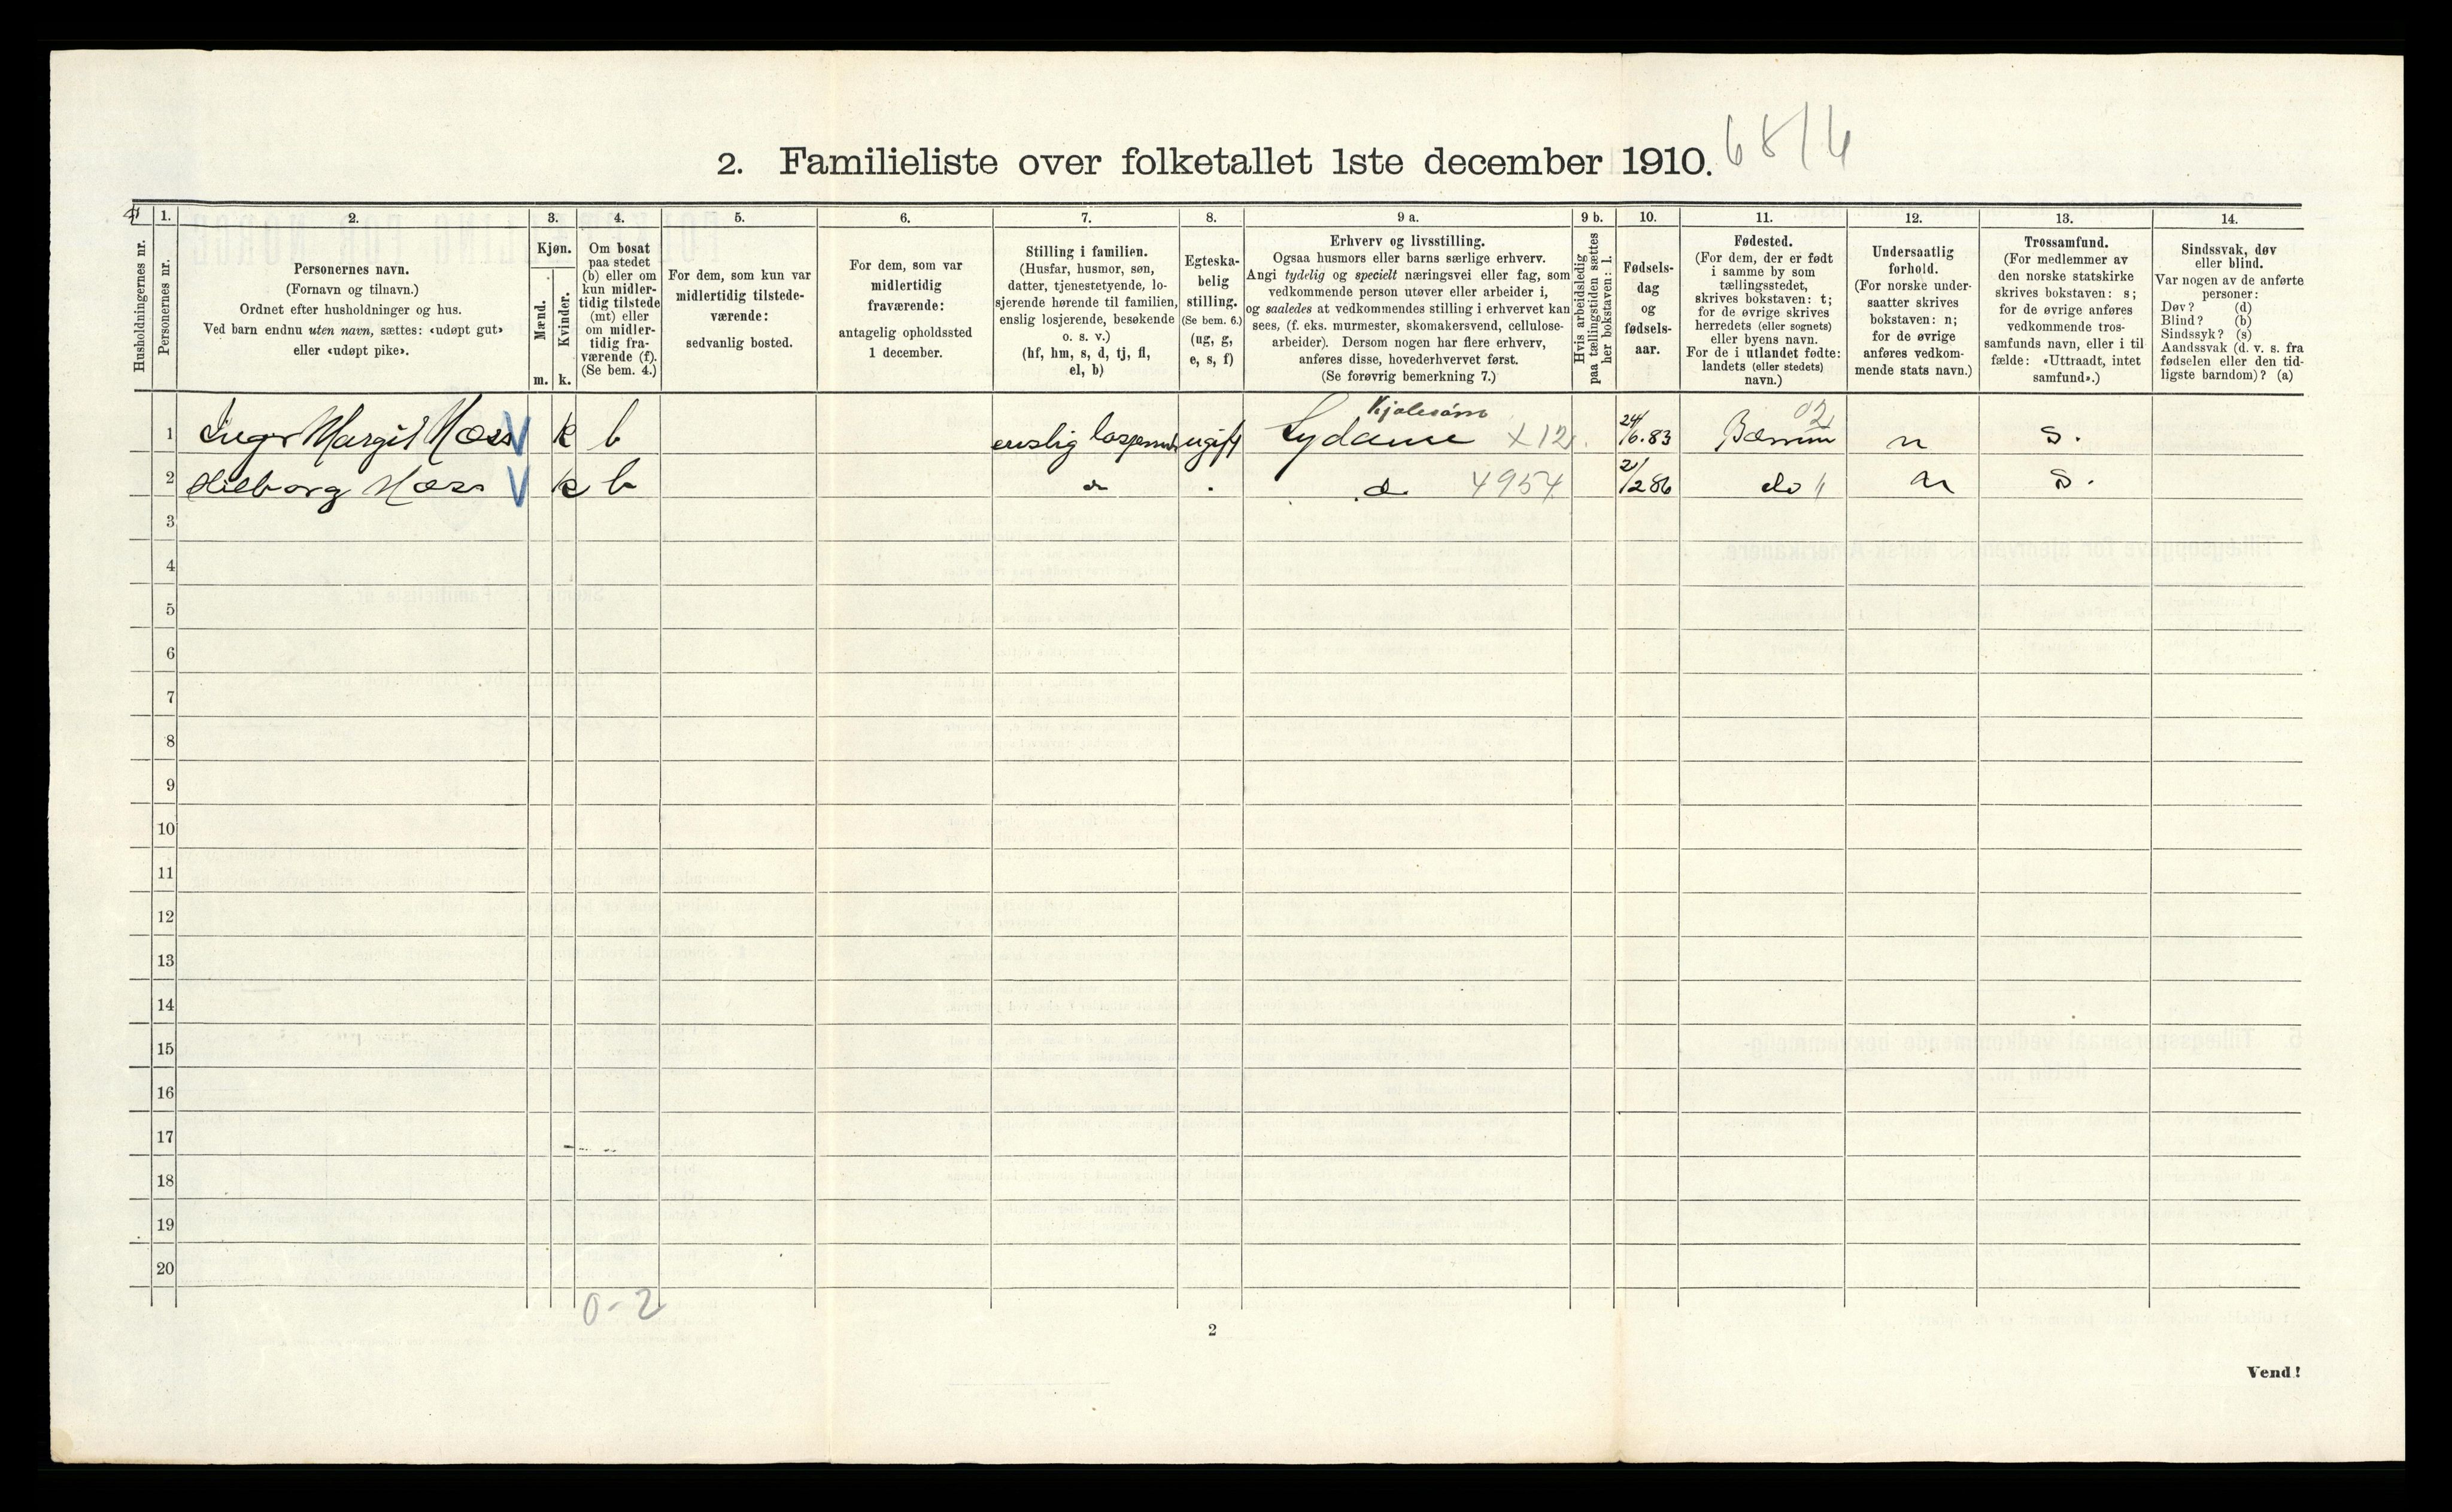 2. Familieliste over folketallet 1ste december 1910. 68/4
1. 2. 3. 4. 5. 6. 7. 8. 9 a. 9 b. 10. 11. 12. 13. 14.
Husholdningernes nr.
Personernes nr.
Personernes navn.
(Fornavn og tilnavn.)
Ordnet efter husholdninger og hus.
Ved barn endnu uten navn, sættes: «udøpt gut»
eller «udøpt pike».
Kjøn.
Mænd.
Kvinder.
m. k.
Om bosat
paa stedet
(b) eller om
kun midler-
tidig tilstede
(mt) eller
om midler-
tidig fra-
værende (f).
(Se bem. 4.)
For dem, som kun var
midlertidig tilstede-
værende:
sedvanlig bosted.
For dem, som var
midlertidig
fraværende:
antagelig opholdssted
1 december.
Stilling i familien.
(Husfar, husmor, søn,
datter, tjenestetyende, lo-
sjerende hørende til familien,
enslig losjerende, besøkende
o. s. v.)
(hf, hm, s, d, tj, fl,
el, b)
Egteska-
belig
stilling.
(Se bem. 6.)
(ug, g,
e, s, f)
Erhverv og livsstilling.
Ogsaa husmors eller barns særlige erhverv.
Angi tydelig og specielt næringsvei eller fag, som
vedkommende person utøver eller arbeider i,
og saaledes at vedkommendes stilling i erhvervet kan
sees, (f. eks. murmester, skomakersvend, cellulose-
arbeider). Dersom nogen har flere erhverv,
anføres disse, hovederhvervet først.
(Se forøvrig bemerkning 7.)
Hvis arbeidsledig
paa tællingstiden sættes
her bokstaven: l.
Fødsels-
dag
og
fødsels-
aar.
Fødested.
(For dem, der er født
i samme by som
tællingsstedet,
skrives bokstaven: t;
for de øvrige skrives
herredets (eller sognets)
eller byens navn.
For de i utlandet fødte:
landets (eller stedets)
navn.)
Undersaatlig
forhold.
(For norske under-
saatter skrives
bokstaven: n;
for de øvrige
anføres vedkom-
mende stats navn.)
Trossamfund.
(For medlemmer av
den norske statskirke
skrives bokstaven: s;
for de øvrige anføres
vedkommende tros-
samfunds navn, eller i til-
fælde: «Uttraadt, intet
samfund».)
Sindssvak, døv
eller blind.
Var nogen av de anførte
personer:
Døv? (d)
Blind? (b)
Sindssyk? (s)
Aandssvak (d. v. s. fra
fødselen eller den tid-
ligste barndom)? (a)
Kjolesøm 02
1 Inga Margit Næss V k b enslig ugift Sydame X12 24/6.83 Bærum n s.
2 Næss V k b d 4954 21/2 86 do n s.
3
4
5
6
7
8
9
10
11
12
13
14
15
16
17
18
19
20
0-2
2
Vend!